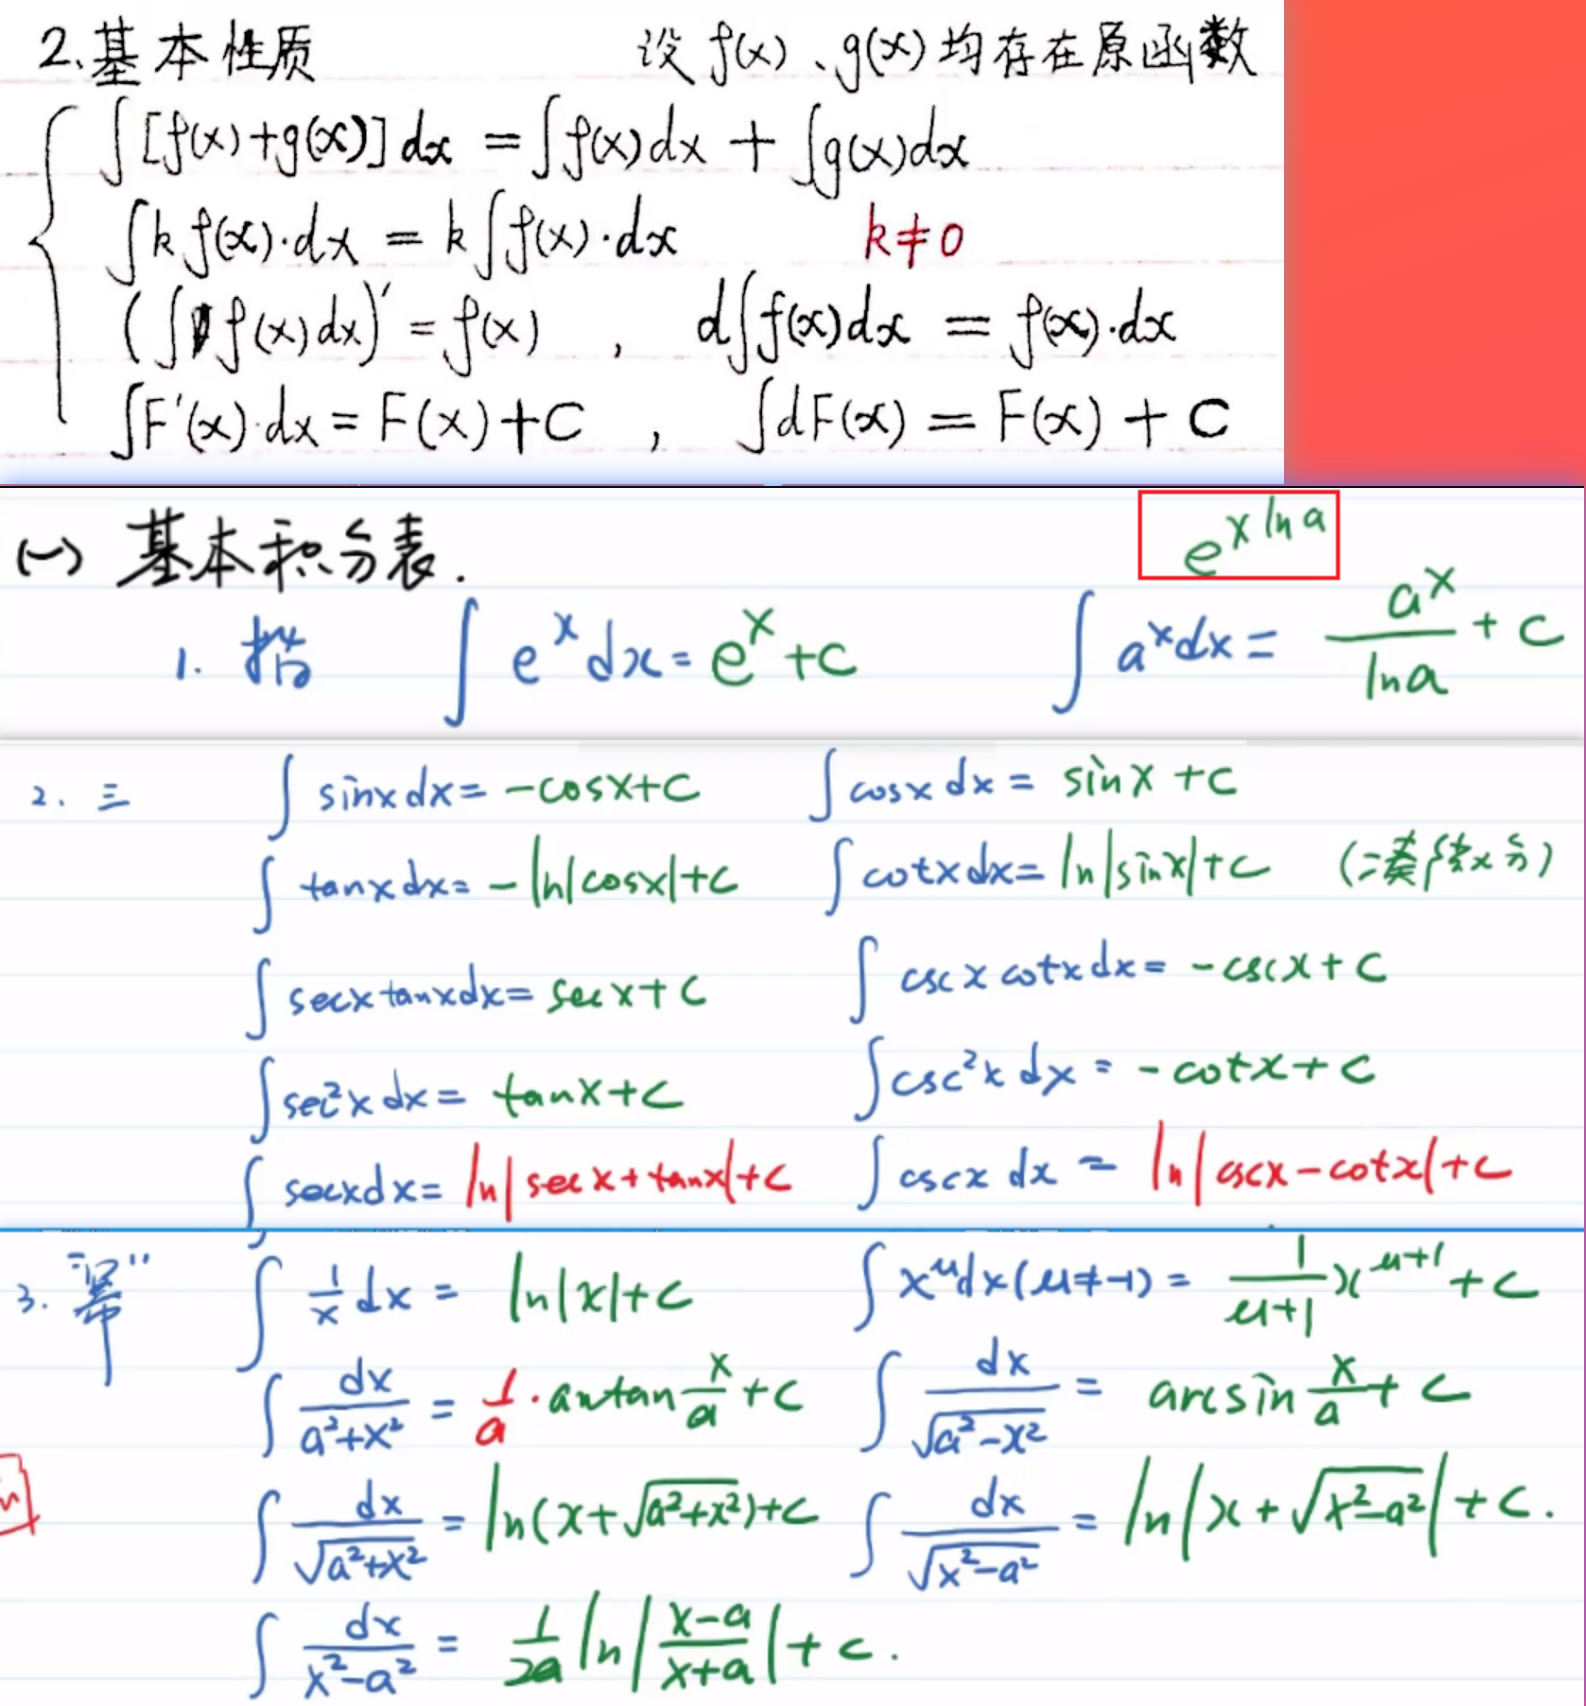 2.基本性质 设 f(x)、g(x)均存在原函数
∫[f(x)+g(x)]dx = ∫f(x)dx + ∫g(x)dx
∫k f(x)·dx = k∫f(x)·dx k≠0
(∫f(x)dx)′ = f(x) , d∫f(x)dx = f(x)·dx
∫F′(x)·dx = F(x)+C , ∫dF(x) = F(x) + C
(一) 基本积分表. e^{x ln a}
1. 指 ∫e^x dx = e^x + C ∫a^x dx = a^x/ln a + C
2. 三 ∫sinx dx = -cosx+C ∫cosx dx = sinx + C
∫tanx dx = -ln|cosx|+C ∫cotx dx = ln|sinx|+C
∫secx tanx dx = secx + C ∫cscx cotx dx = -cscx + C
∫sec²x dx = tanx+C ∫csc²x dx = -cotx + C
∫secx dx = ln|secx+tanx|+C ∫cscx dx = ln|cscx-cotx|+C
3. “幂” ∫1/x dx = ln|x|+C ∫x^μ dx (μ≠-1) = 1/(μ+1) x^{μ+1} + C
∫dx/(a²+x²) = 1/a · arctan x/a + C ∫dx/√(a²-x²) = arcsin x/a + C
∫dx/√(a²+x²) = ln(x+√(a²+x²))+C ∫dx/√(x²-a²) = ln|x+√(x²-a²)|+C.
∫dx/(x²-a²) = 1/2a ln|(x-a)/(x+a)| + C.